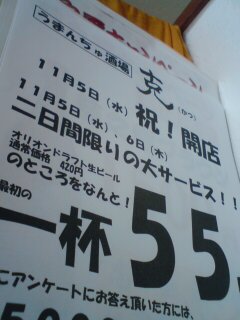 うまんちゅ酒場
克
(かつ)
11月5日(水)祝!開店
11月5日(水)、6日(木)
二日間限りの大サービス!!
オリオンドラフト生ビール
通常価格 420円
のところをなんと!
最初の
一杯 55
にアンケートにお答え頂いた方には、